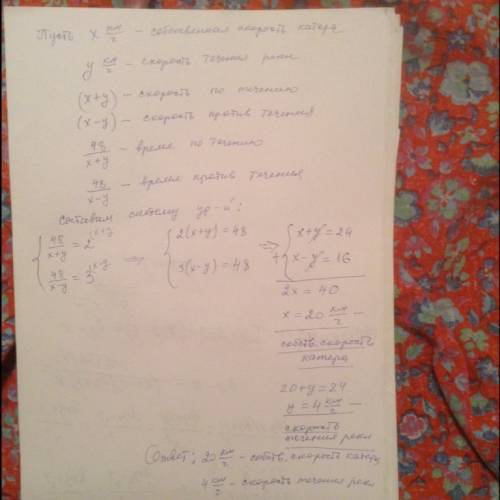 Пусть x км/г – собственная скорость катера
y км/г – скорость течения реки
(x+y) – скорость по течению
(x-y) – скорость против течения
48/(x+y) – время по течению
48/(x-y) – время против течения
Составим систему ур-й:
{ 48/(x+y) = 2 |x+y ⇒ { 2(x+y) = 48 ⇒ { x+y = 24
48/(x-y) = 3 |x-y 3(x-y) = 48 + x-y = 16
2x = 40
x = 20 км/г –
собств. скорость
катера
20+y = 24
y = 4 км/г –
скорость
течения реки
Ответ: 20 км/г – собств. скорость катера
4 км/г – скорость течения реки